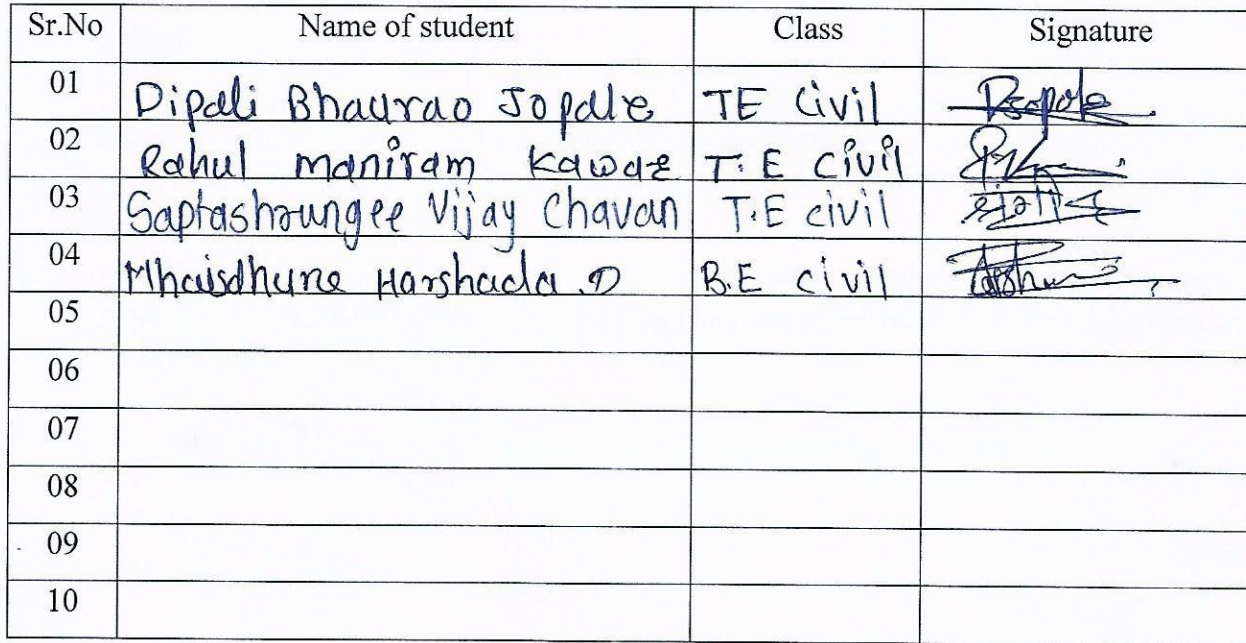 Sr.No Name of student Class Signature
01 Dipali Bhaurao Jopale TE Civil
02 Rahul maniram Kaware T.E Civil
03 Saptashrungee Vijay Chavan T.E civil
04 Mhaisdhune Harshada .D B.E civil
05
06
07
08
09
10